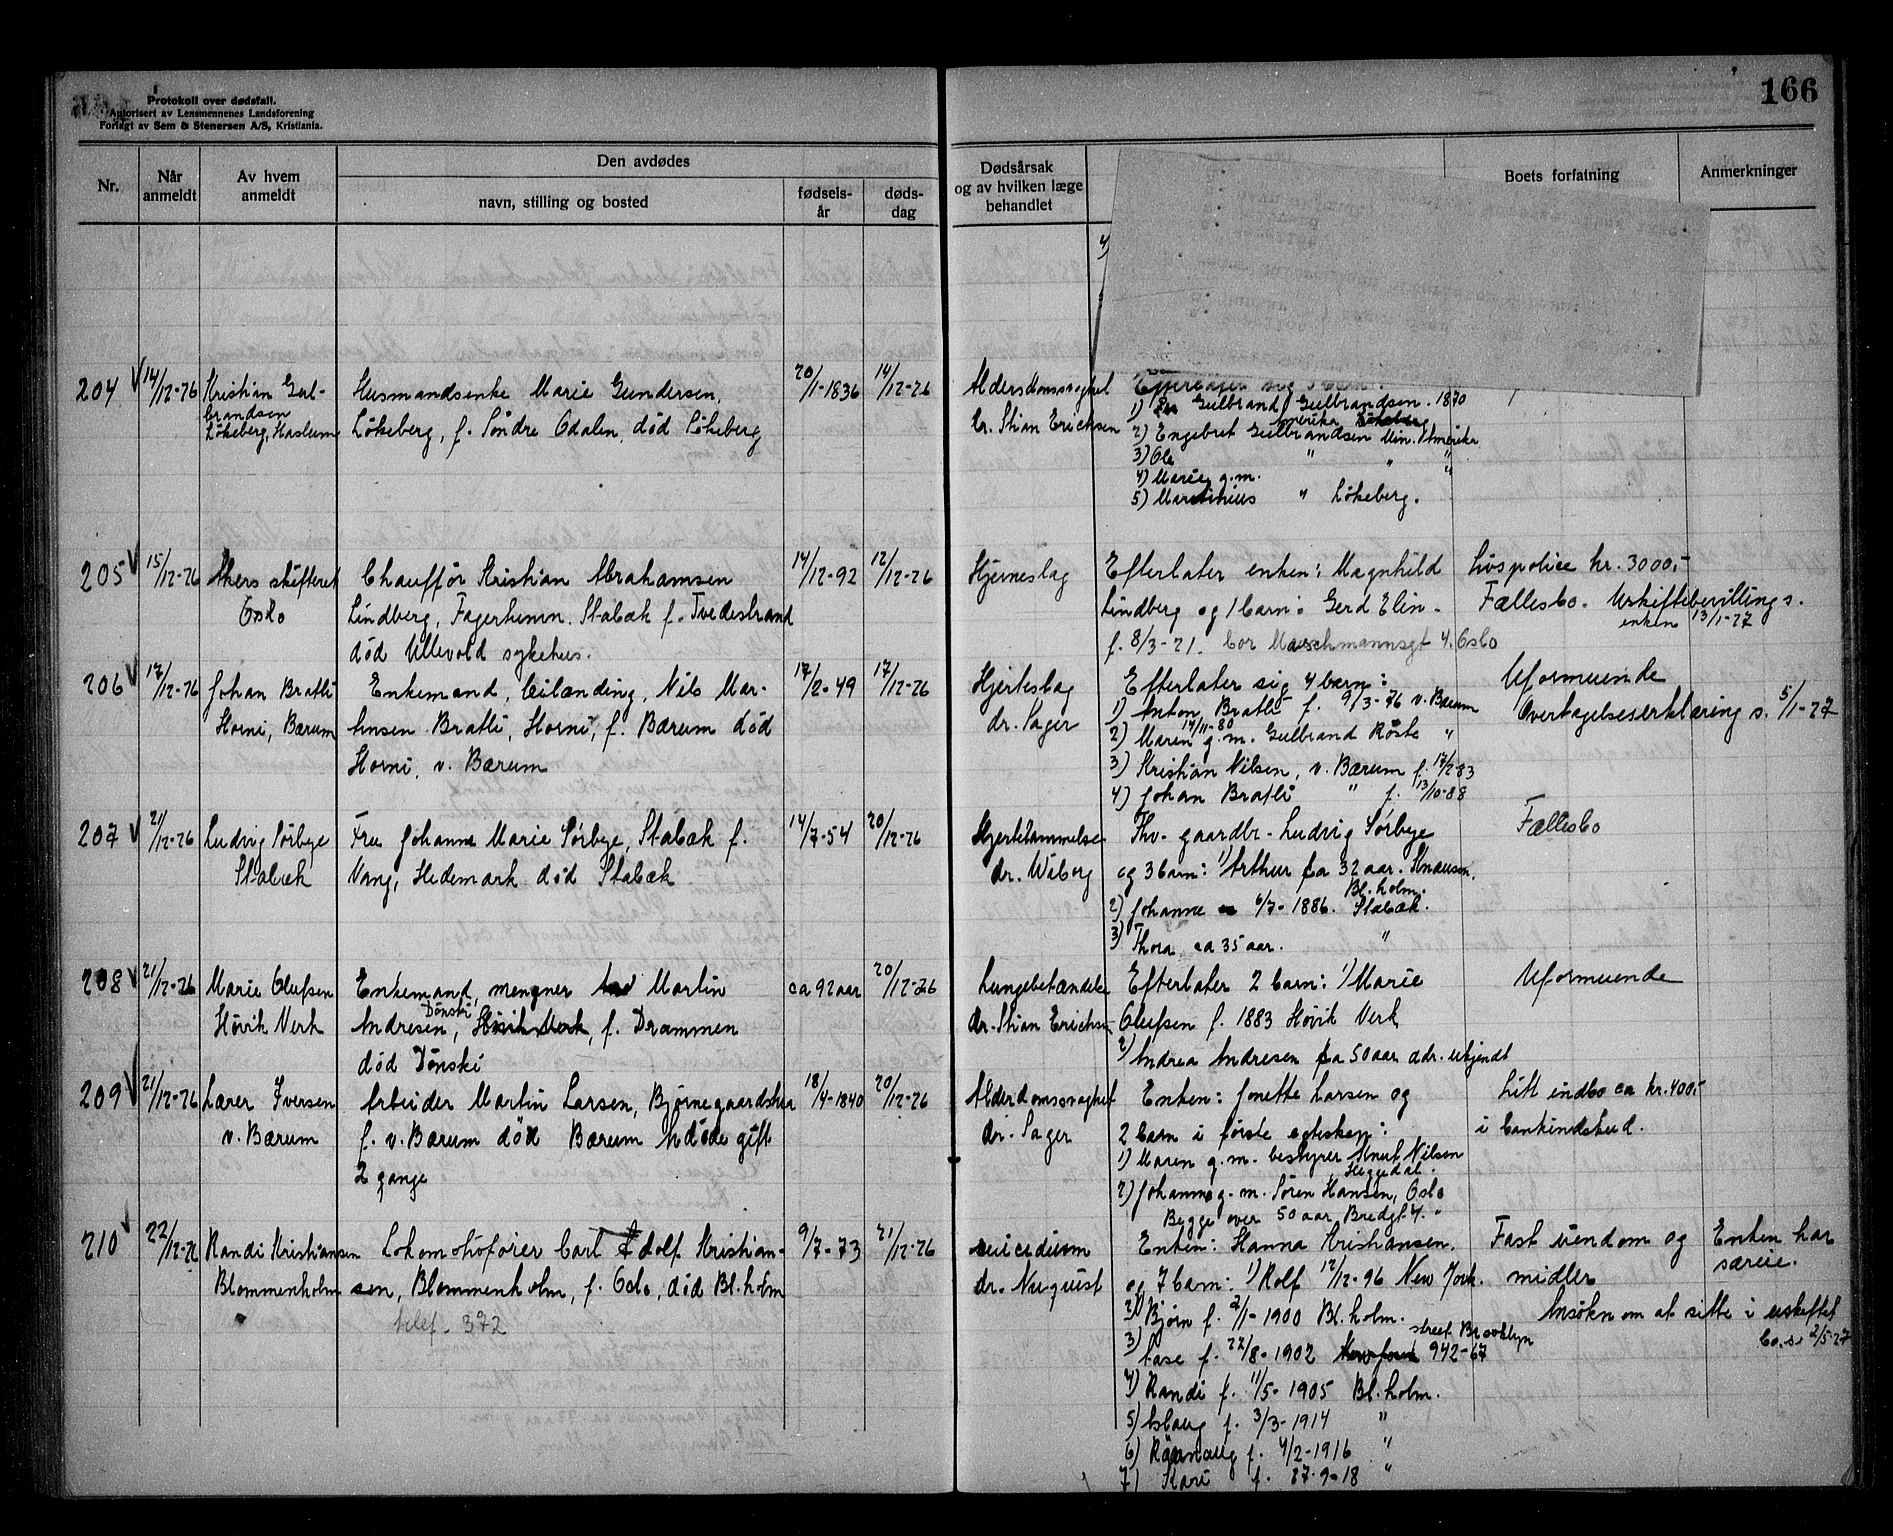 Protokoll over dødsfall.
Autorisert av Lensmennenes Landsforening
Forlagt av Sem & Stenersen A/S, Kristiania.
166
Nr.
Når anmeldt
Av hvem anmeldt
Den avdødes
navn, stilling og bosted
fødsels-år
døds-dag
Dødsårsak og av hvilken læge behandlet
Boets forfatning
Anmerkninger
4)
204 14/12-26 Kristian Gul-
brandsen
Løkeberg, Haslum
Husmandsenke Marie Gundersen,
Løkeberg, f. Søndre Odalen, død Løkeberg
20/1-1836 14/12-26
Alderdomssvaghet
Dr. Stian Erichsen
Efterlater sig 5 barn:
1) Gulbrand Gulbrandsen. 1870
Amerika
2) Engebret Gulbrandsen Min. Amerika
3) Ole " " "
4) Marie g.m. "
5) Martinius " Løkeberg.
205 15/12-26 Akers skifteret
Oslo
Chauffør Kristian Abrahamsen
Lindberg, Fagerheimn. Stabæk f. Tvedestrand
død Ullevold sykehus.
14/12-92 12/12-26
Hjerneslag
Efterlater enken: Magnhild
Lindberg og 1 barn: Gerd Elin
f. 8/3-21. bor Marschmannsgt 4. Oslo
Livspolice kr. 3000,-
Fællesbo. Uskiftebevilling s.
enken 13/1-27
206 17/12-26 Johan Bratli
Horni, Bærum
Enkemand, Nils Mar-
tinsen Bratli, Horni, f. Bærum død
Horni, v. Bærum
17/2-49 17/12-26
Hjerteslag
dr. Sager
Efterlater sig 4 barn:
1) Anton Bratli f. 9/3-76 v. Bærum
14/11-80
2) Maren g.m. Gulbrand Røste "
3) Kristian Nilsen, v. Bærum f. 17/2-83
4) Johan Bratli " f. 13/10-88
Uformuende
Overtagelseserklæring s. 5/1-27
207 21/12-26 Ludvig Sørbye
Stabæk
Fru Johanne Marie Sørbye, Stabæk f.
Vang, Hedemark død Stabæk
14/7-54 20/12-26
Hjertelammelse
dr. Wiborg
Thv. gaardbr. Ludvig Sørbye
og 3 barn: 1) Arthur ca 32 aar.
Bl.holm.
2) Johanne 6/7-1886. Stabæk.
3) Thora ca 35 aar. "
Fællesbo
208 21/12-26 Marie Olufsen
Høvik Verk
Enkemand, Martin
Dønski
Andresen, Høvik Verk, f. Drammen
død Dønski
ca 92 aar 20/12-26
Lungebetændelse
dr. Stian Erichsen
Efterlater 2 barn: 1) Marie
Olufsen f. 1883 Høvik Verk
2) Andrea Andresen ca 50 aar adr. ukjendt
Uformuende
209 21/12-26 Lærer Iversen
v. Bærum
Arbeider Martin Larsen, Bjørnegaardshaa
f. v. Bærum død Bærum Avdøde gift
2 gange
18/4-1840 20/12-26
Alderdomssvaghet
dr. Sager
Enken: Jonette Larsen og
2 barn i første egteskap:
1) Maren g.m. bestyrer Knut Nilsen
Heggedal.
2) Johanne g.m. Søren Hansen, Oslo
Begge over 50 aar, Bredgt. 4. "
Litt indbo ca kr. 400,-
i bankindskud.
210 22/12-26 Randi Kristiansen
Blommenholm
Lokomotivfører Carl Adolf Kristian-
sen, Blommenholm, f. Oslo, død Bl.holm
telef. 372
9/7-73 21/12-26
suicidium
dr. Nyquist
Enken: Hanna Kristiansen.
og 7 barn: 1) Rolf 12/12-96 New York.
2) Bjørn f. 7/1-1900 Bl.holm.
street Brooklyn
3) Aase f. 22/8-1902 942-67
4) Randi f. 11/5-1905 Bl.holm.
5) Aslaug f. 3/3-1914 "
6) Rannaug f. 4/2-1916 "
7) Kari f. 27-9-18 "
Fast eiendom og
midler
Ansøkn om at sitte i uskiftet
bo. s. 2/5-27
Enken har
særeie.